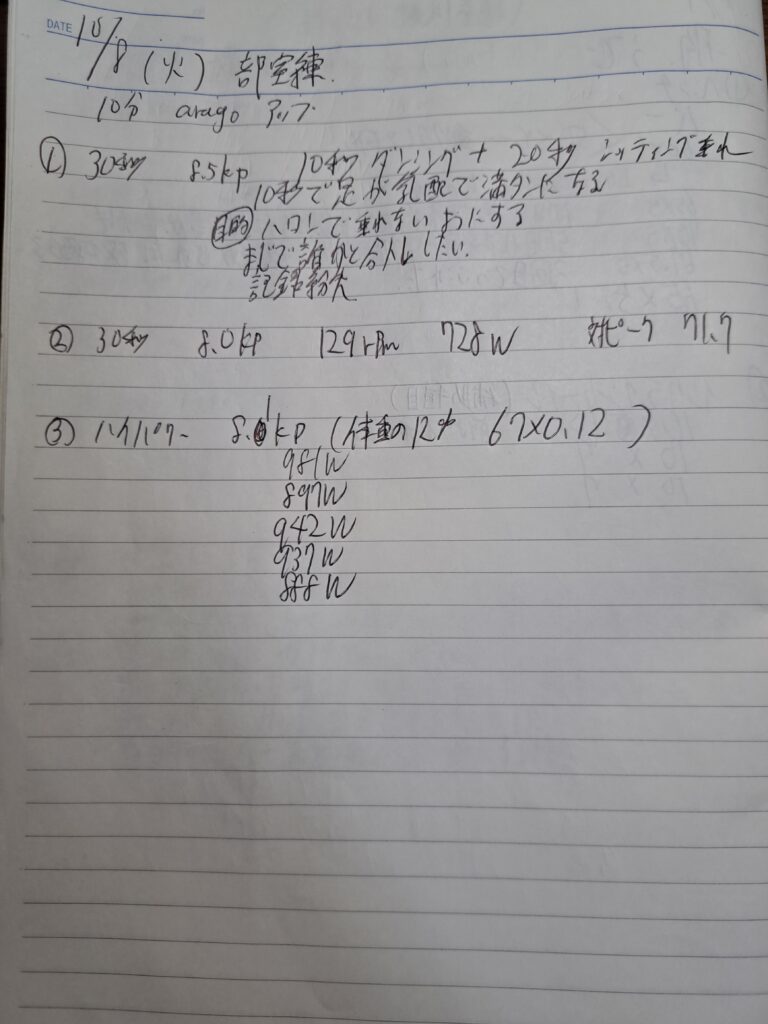 DATE 10/8 (火) 部室練.
10分 arago アップ
① 30秒 8.5kp 10秒ダンシング+20秒シッティング垂れ
10秒で足が乳酸で満タンになる
目的 ハロンで垂れないようにする
まじで誰かと合トレしたい.
記録紛失
② 30秒 8.0kp 129rpm 728W 対ピーク 71.7
③ ハイパワー 8.1kp (体重の12% 67×0.12)
981W
897W
942W
937W
888W